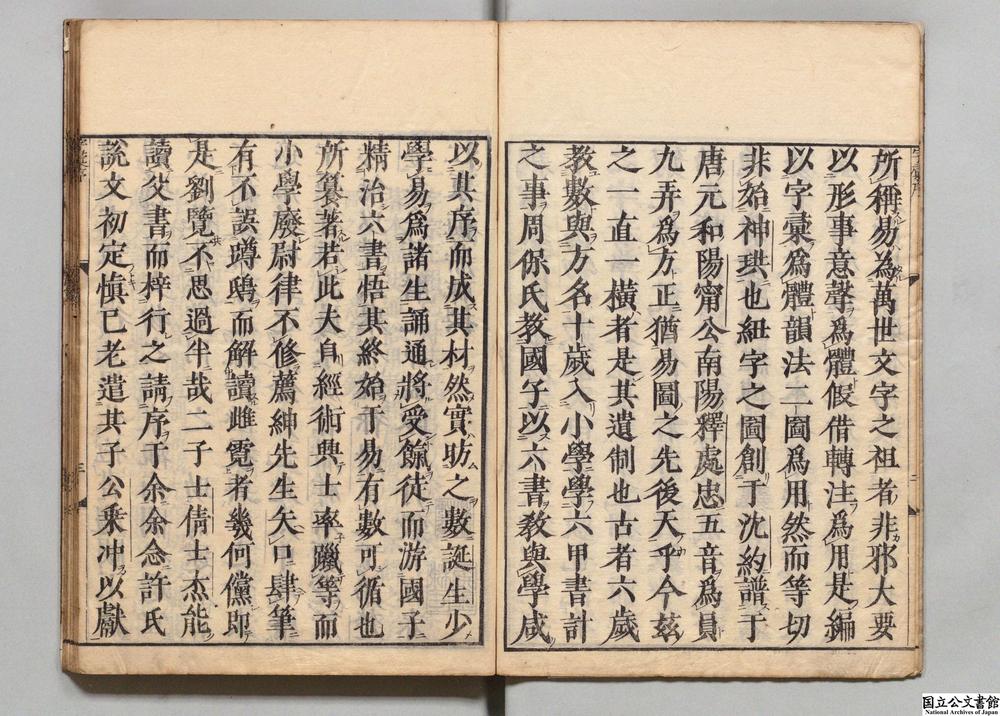 所稱易為萬世文字之祖者非邪大要
以形事意聲爲體假借轉注爲用是編
以字彙爲體韻法二圖爲用然而等切
非始神珙也紐字之圖創于沈約譜于
唐元和陽甯公南陽釋處忠五音爲員
九弄爲方正猶易圖之先後天乎今茲
之一直一橫者是其遺制也古者六歲
教數與方名十歲入小學學六甲書計
之事周保氏教國子以六書教與學咸
以其序而成其材然實昉之數誕生少
學易爲諸生誦通將受餼徒而游國子
精治六書悟其終始于易有數可循也
所纂著若此夫自經術興士率躐等而
小學廢尉律不修薦紳先生矢口肆筆
有不誤蹲鴟而解讀雌霓者幾何儻即
是劉覽不思過半哉二子士倩士杰能
讀父書而梓行之請序于余余念許氏
說文初定愼已老遣其子公乘冲以獻
三
国立公文書館
National Archives of Japan